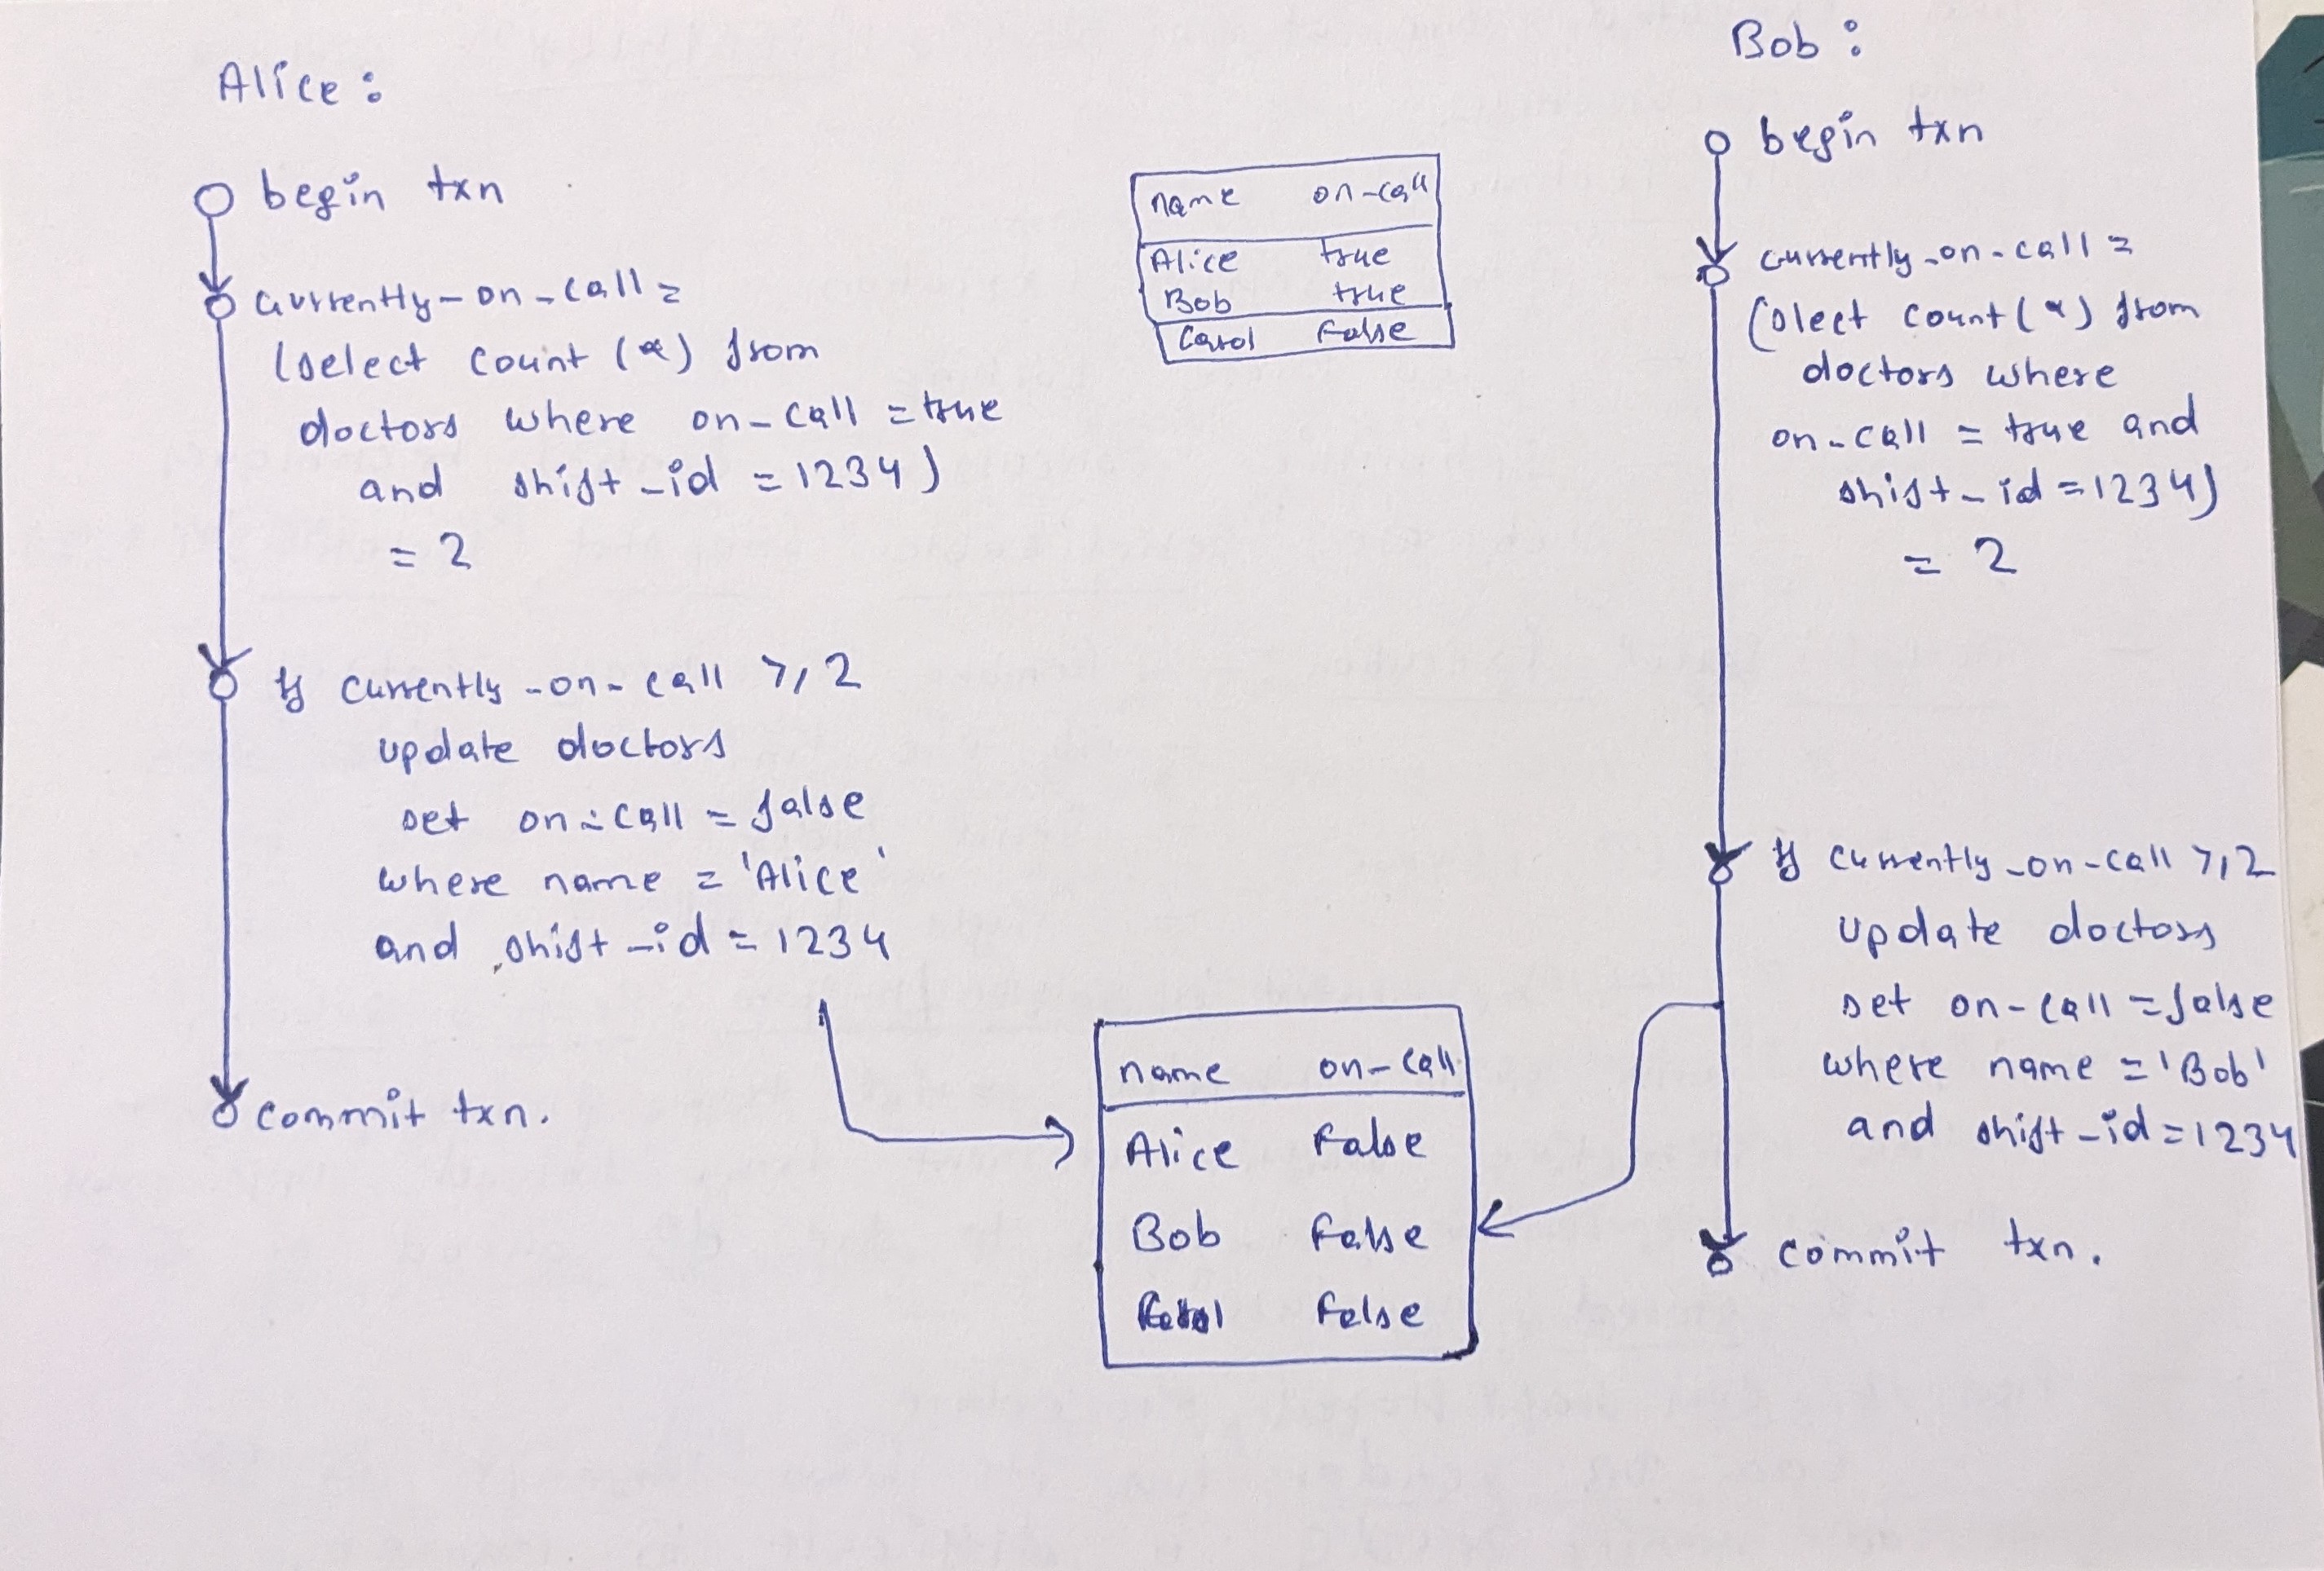 Alice :
begin txn
currently-on-call =
(select count (*) from
doctors where on-call = true
and shift-id = 1234)
= 2
If currently-on-call >, 2
update doctors
set on-call = false
where name = 'Alice'
and shift-id = 1234
commit txn.
name on-call
Alice true
Bob true
Carol False
name on-call
Alice False
Bob False
Carol False
Bob :
begin txn
currently-on-call =
(select count (*) from
doctors where
on-call = true and
shift-id = 1234)
= 2
If currently-on-call >, 2
update doctors
set on-call = false
where name = 'Bob'
and shift-id = 1234
commit txn.